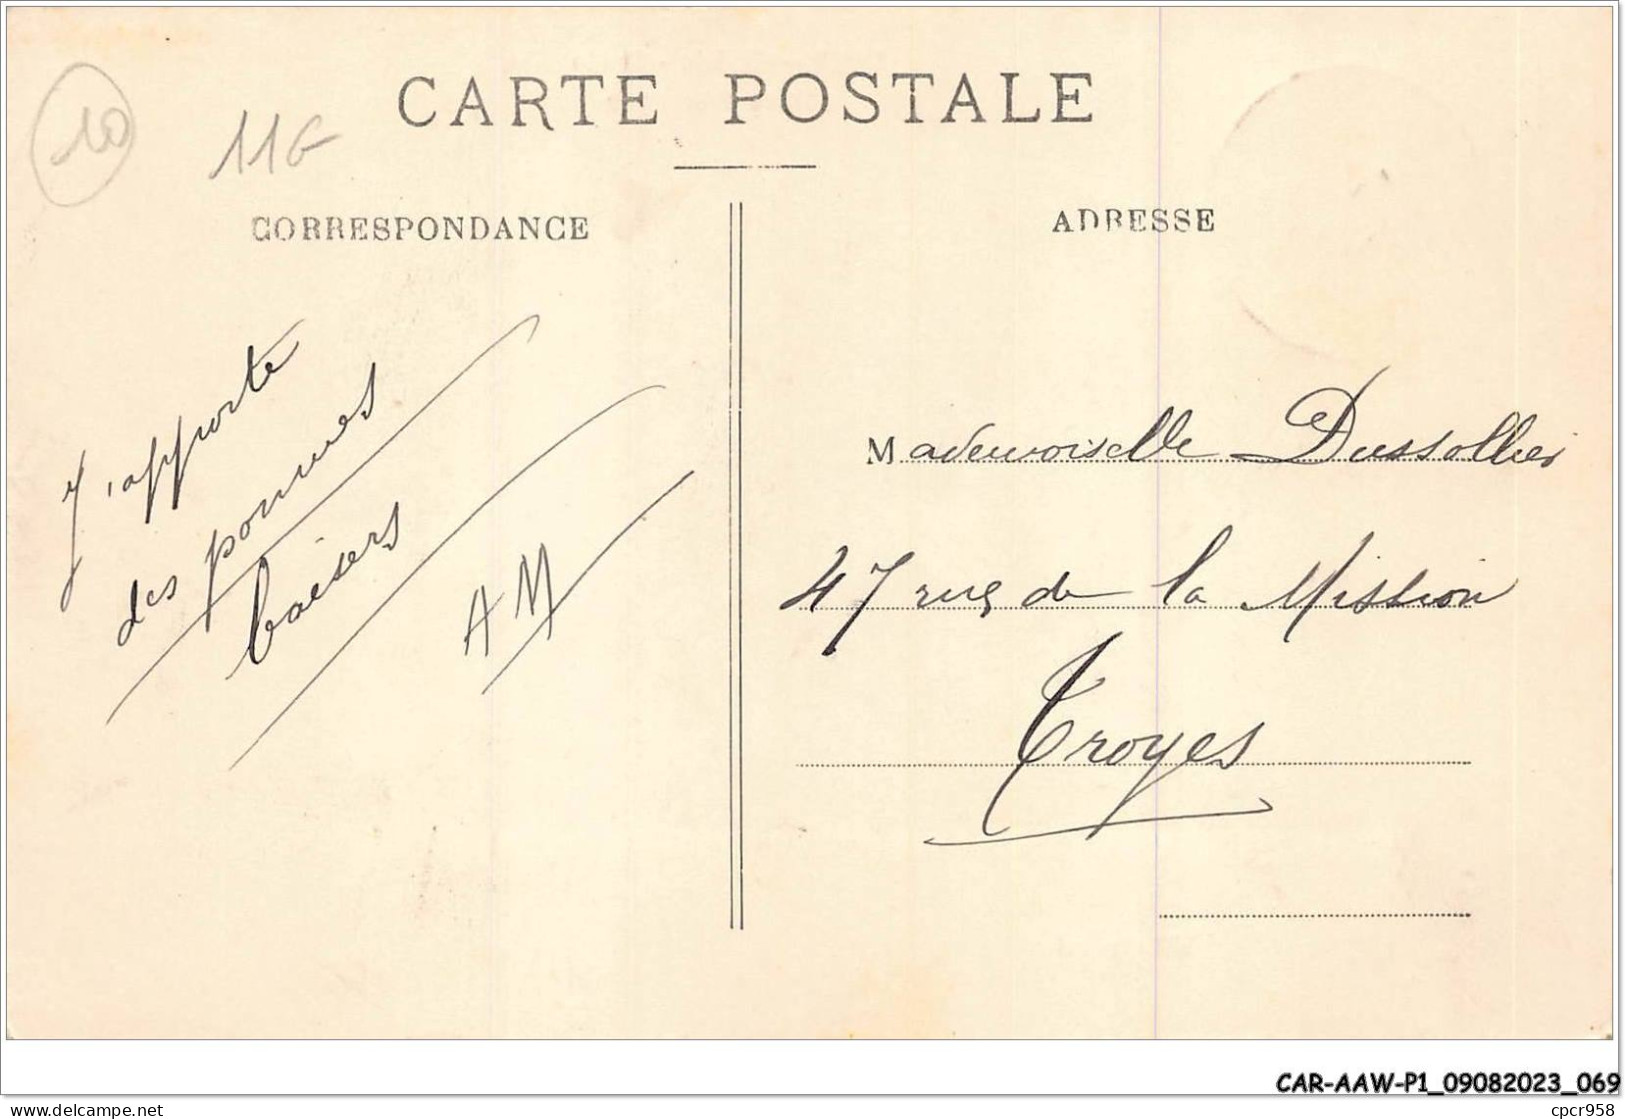 10
11G
CARTE POSTALE
CORRESPONDANCE
ADRESSE
J'apporte
des pommes
baisers
AM
Mademoiselle Dussollier
47 rue de la Mission
Troyes
CAR-AAW-P1_09082023_069
delcampe.net
cpcr958